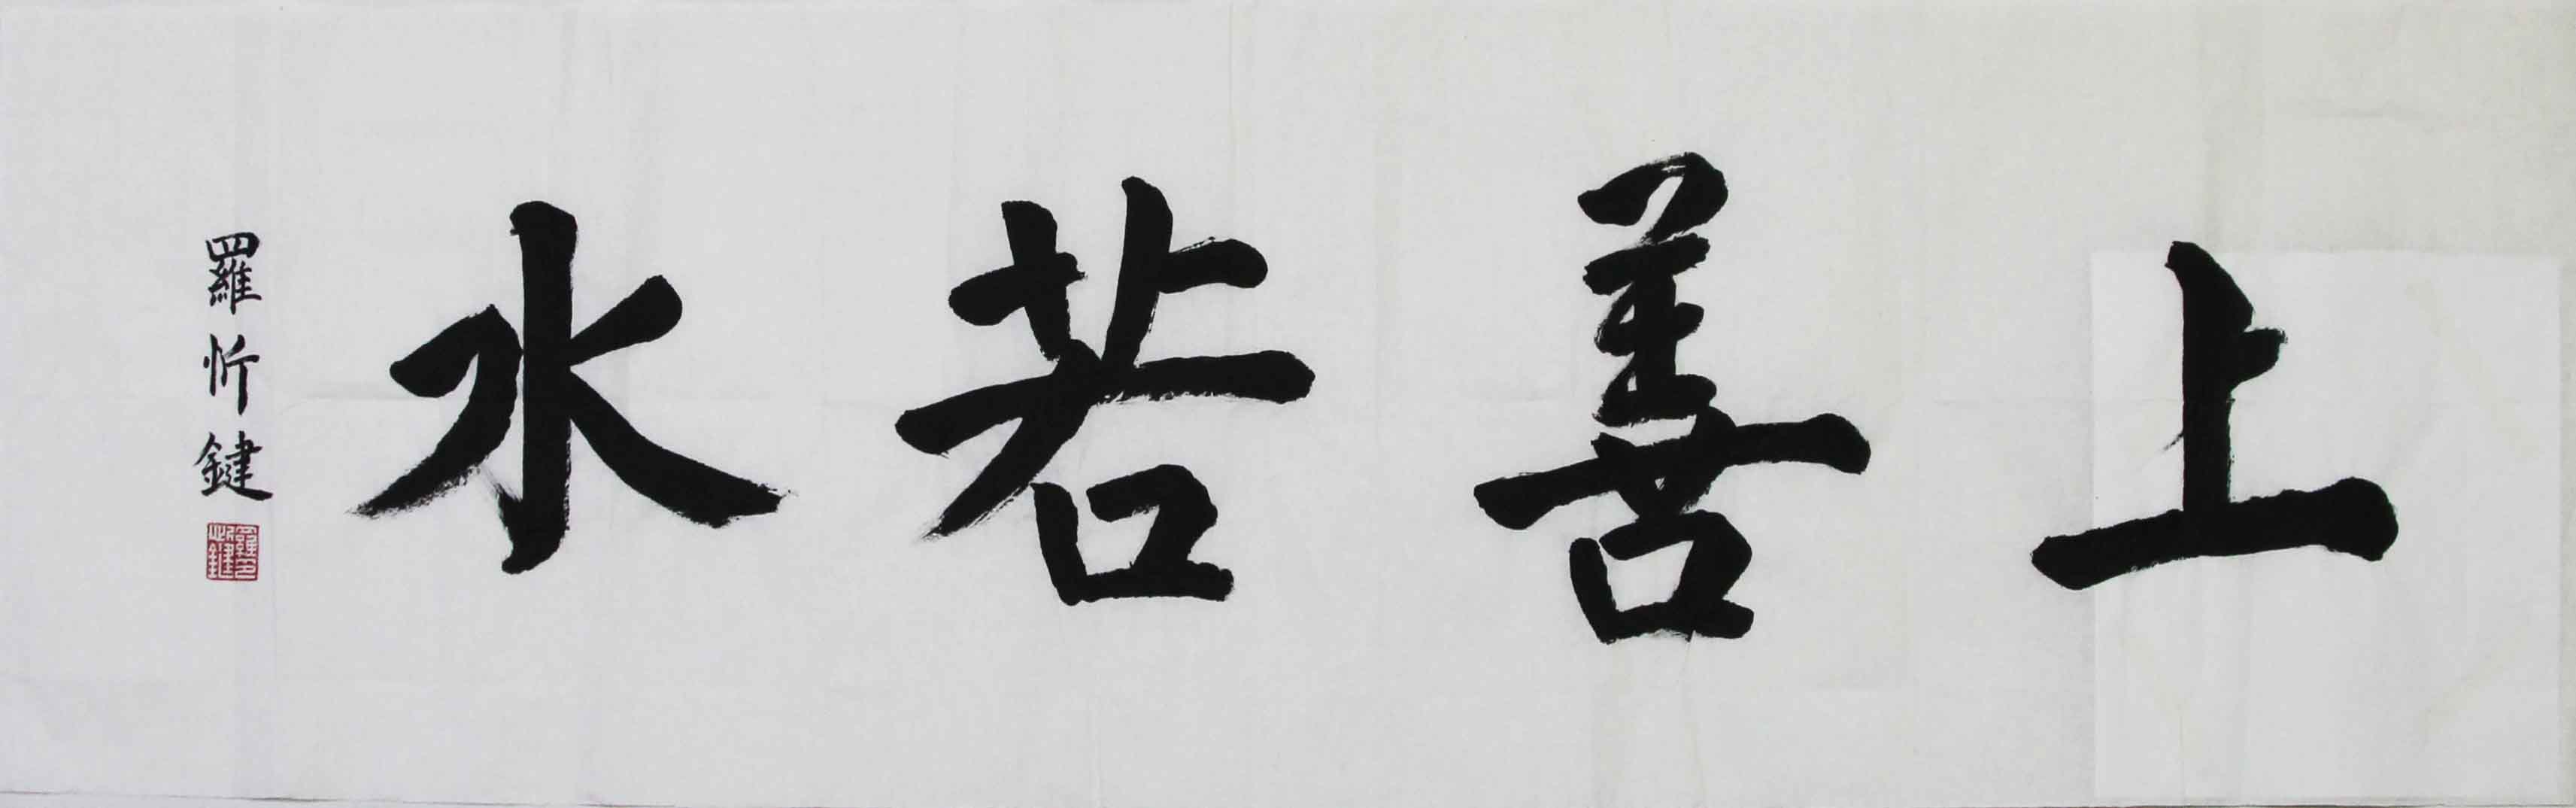 上善若水
羅忻鍵
羅忻鍵印